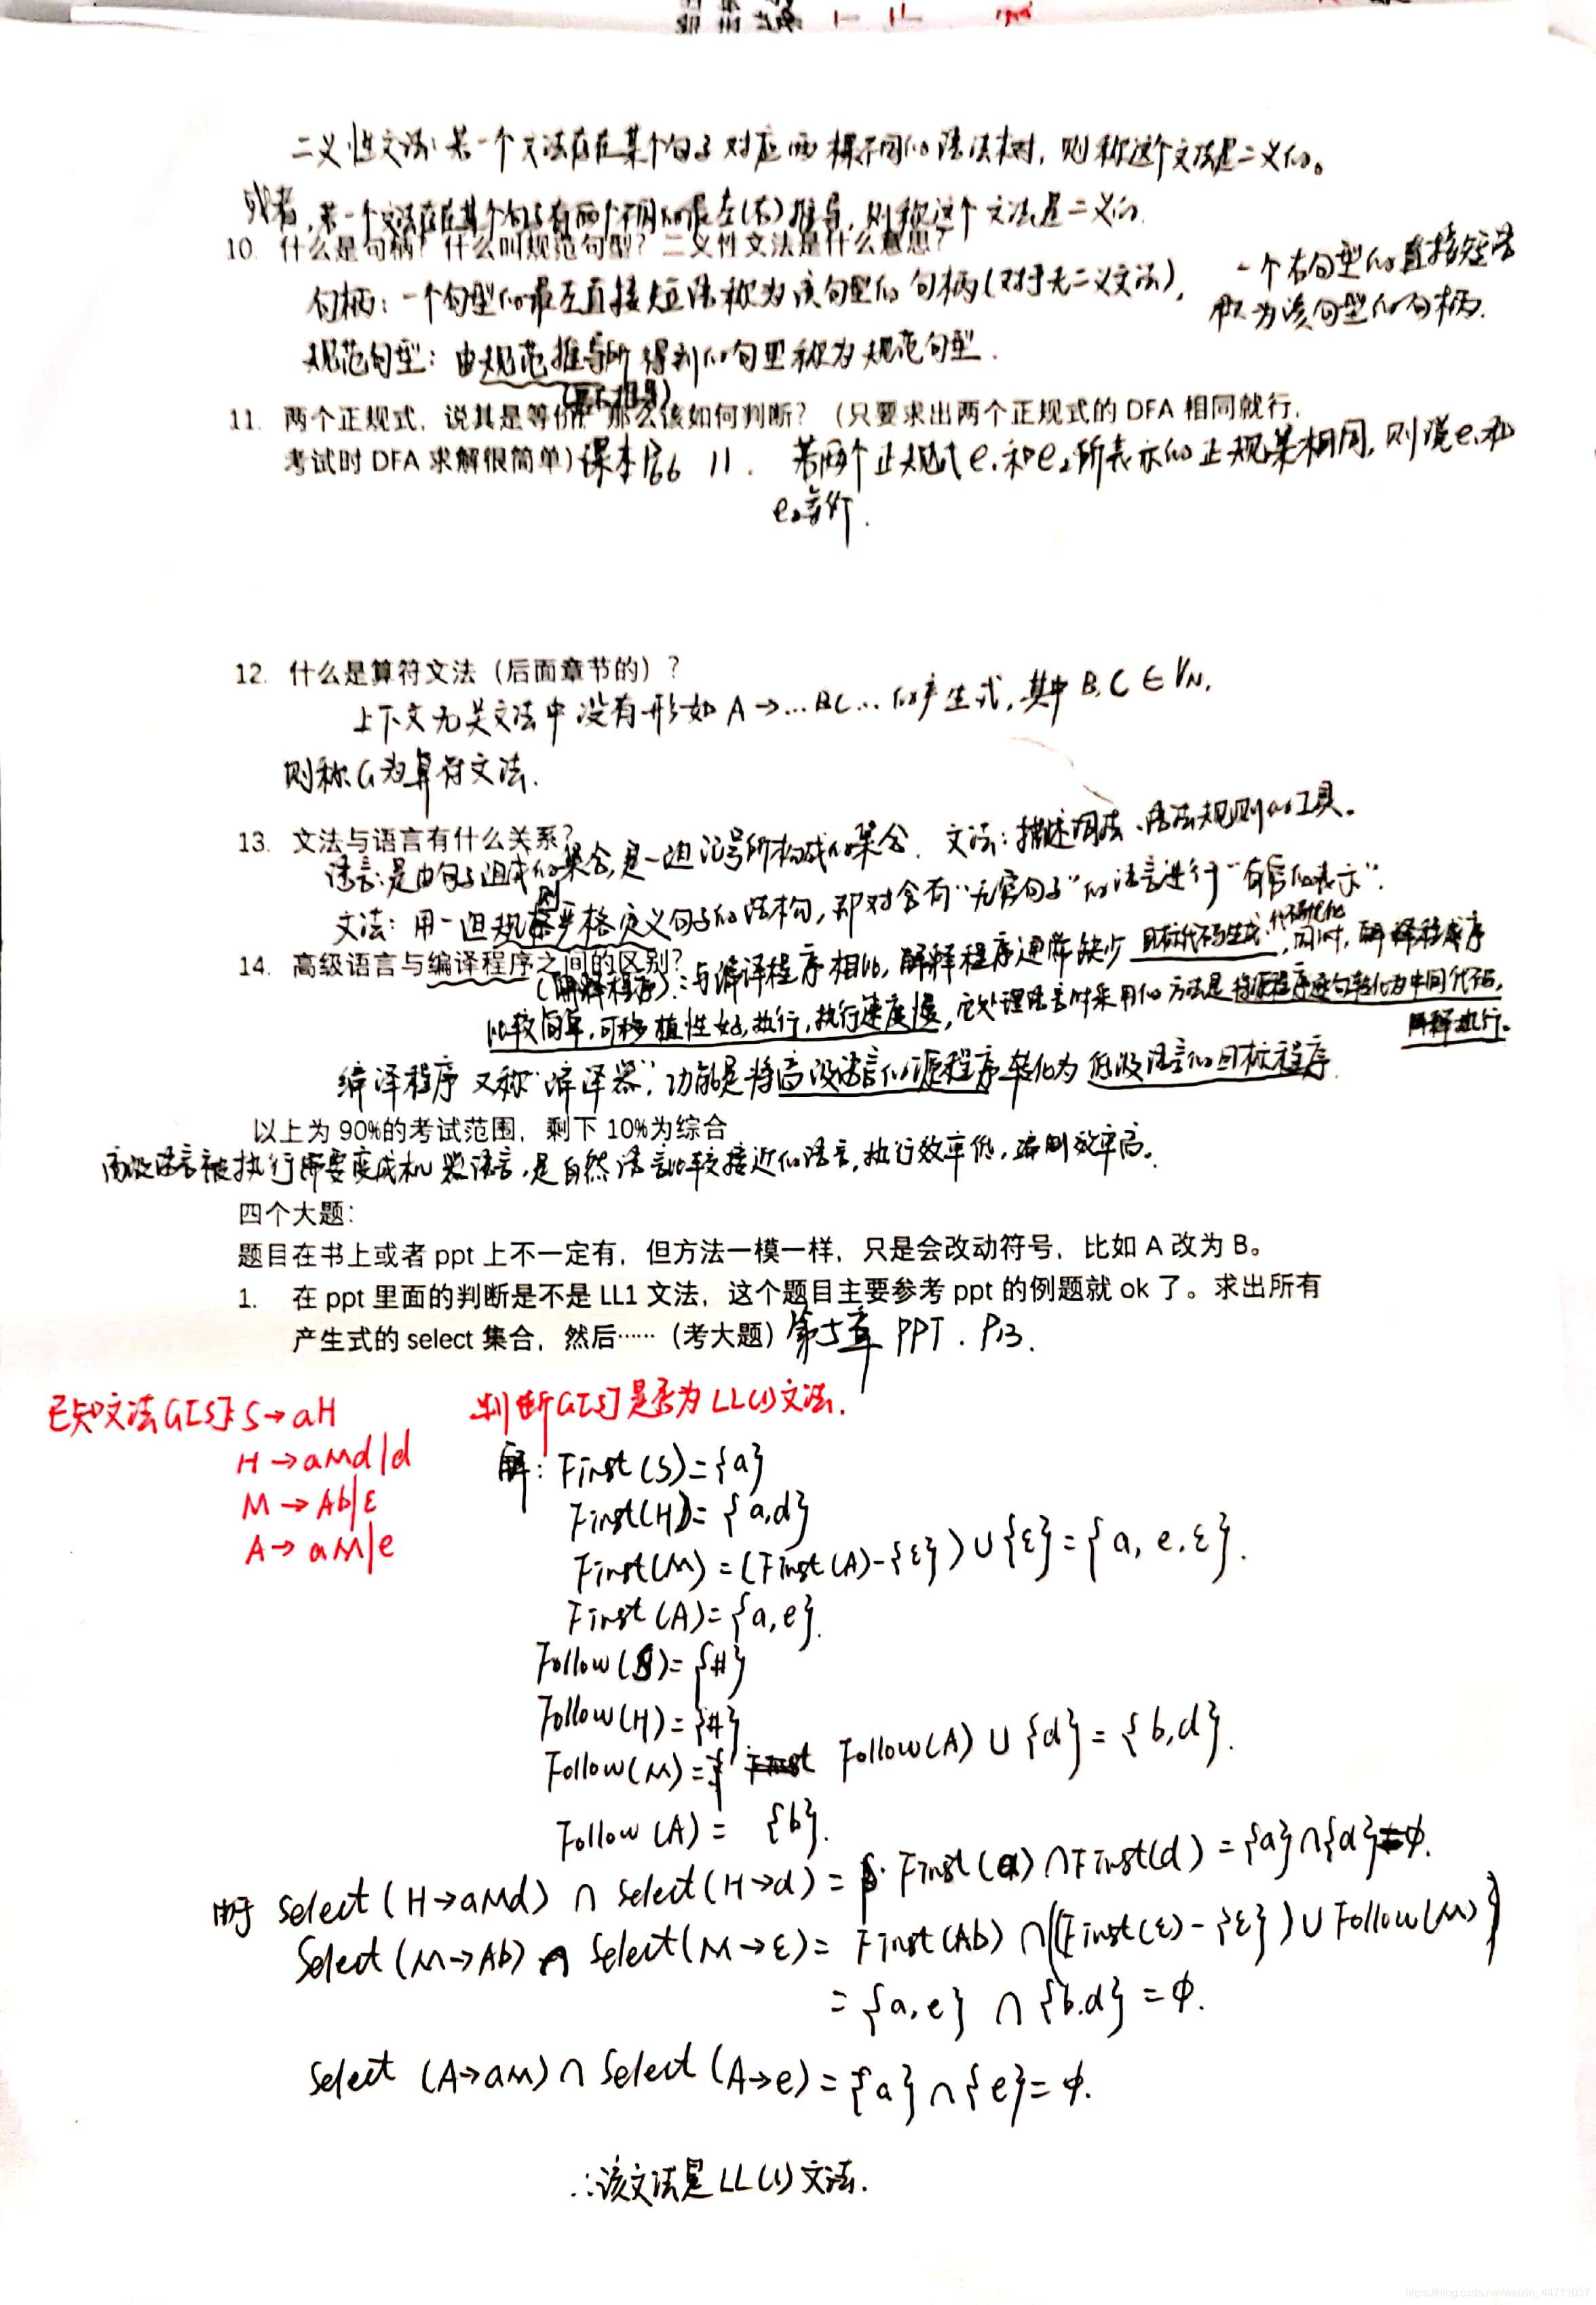 二义性文法: 若一个文法存在某个句子对应两棵不同的语法树, 则称这个文法是二义的。
或者, 若一个文法存在某个句子有两个不同的最左(右)推导, 则称这个文法是二义的.
10. 什么是句柄? 什么叫规范句型? 二义性文法是什么意思?
句柄: 一个句型的最左直接短语称为该句型的句柄(对于无二义文法), 一个右句型的直接短语
称为该句型的句柄.
规范句型: 由规范推导所得到的句型称为规范句型.
(最右推导)
11. 两个正规式，说其是等价，那么该如何判断？（只要求出两个正规式的 DFA 相同就行，
考试时 DFA 求解很简单) 课本 11. 若两个正规式e₁和e₂所表示的正规集相同, 则说e₁和
e₂等价.
12. 什么是算符文法（后面章节的）?
上下文无关文法中没有形如 A→…BC…的产生式, 其中 B,C∈VN,
则称G为算符文法.
13. 文法与语言有什么关系?
语言: 是由句子组成的集合, 是一组记号所构成的集合. 文法: 描述词法、语法规则的工具.
文法: 用一组规则严格定义句子的结构, 即对含有"无穷句子"的语言进行"有穷的表示".
14. 高级语言与编译程序之间的区别?
(解释程序): 与编译程序相比, 解释程序通常缺少目标代码生成, 代码优化, 同时, 解释程序
比较简单, 可移植性好, 执行, 执行速度慢, 它处理语言时采用的方法是将源程序逐句转化为中间代码,
解释执行.
编译程序 又称"编译器", 功能是将高级语言的源程序转化为低级语言的目标程序.
以上为 90%的考试范围，剩下 10%为综合
高级语言被执行需要变成机器语言, 是自然语言比较接近的语言, 执行效率低, 编制效率高.
四个大题:
题目在书上或者 ppt 上不一定有，但方法一模一样，只是会改动符号，比如 A 改为 B。
1. 在 ppt 里面的判断是不是 LL1 文法，这个题目主要参考 ppt 的例题就 ok 了。求出所有
产生式的 select 集合，然后……（考大题) 第五章 PPT. P13.
已知文法G[S]: S→aH 判断G[S]是否为LL(1)文法.
H→aMd|d
M→Ab|ε
A→aM|e
解: First(S)={a}
First(H)={a,d}
First(M)=(First(A)-{ε})∪{ε}={a, e, ε}.
First(A)={a,e}.
Follow(S)={#}
Follow(H)={#}
Follow(M)= Follow(A)∪{d}={b,d}.
Follow(A)= {b}.
由于 Select(H→aMd)∩Select(H→d)= First(a)∩First(d)={a}∩{d}=φ.
Select(M→Ab)∩Select(M→ε)= First(Ab)∩((First(ε)-{ε})∪Follow(M))
={a,e}∩{b,d}=φ.
Select (A→aM)∩Select(A→e)={a}∩{e}=φ.
∴该文法是LL(1)文法.
https://blog.csdn.net/weixin_44711037